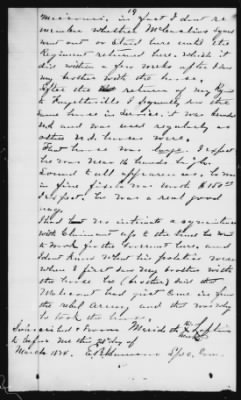 19
Missouri, in fact I dont re
member whether McCaslin's Squad
went out or Staid here until the
Regiment returned here, which it
did within a few weeks after I saw
my brother with the horse.
After the return of my Reg
to Fayetteville I frequently saw the
same horse in Service. it was branded
U.S. and was used regularly as
other U.S. horses were.
That horse was large. I expect
he was near 16 hands high.
Sound to all appearances. he was
in fine fix & was worth $150.00
I expect. he was a real good
nag.
I had no intimate acquaintance
with Claimant up to the time he went
to work for the Government here, and
I dont know what his politics were
when I first saw my brother with
the horse he (brother) said the
Man had just come in from
the rebel Army, and that was why
he took the horse.
Subscribed & Sworn Meridith his X mark
to before me this day of
March 1874. Spec. Com.